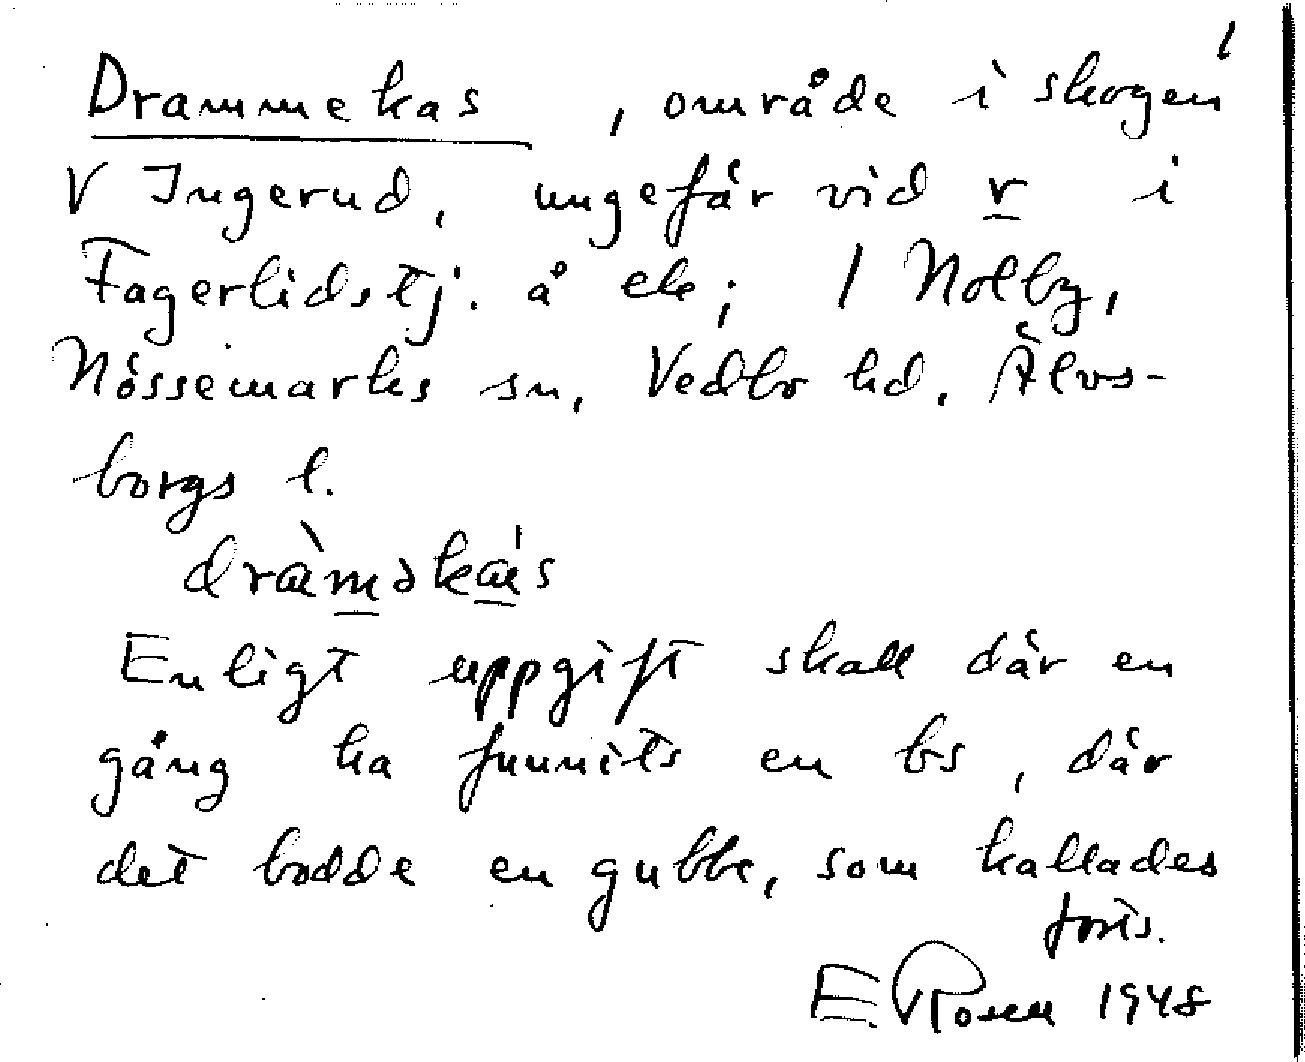 1
Drammekas , område i skogen
V Ingerud, ungefär vid r i
Fagerlidstj. å ek; 1 Nolby,
Nössemarks sn, Vedbo hd. Älvs-
borgs l.
dràməká's
Enligt uppgift skall där en
gång ha funnits en bs, där
det bodde en gubbe, som kallades
forts.
E. Rosen 1948